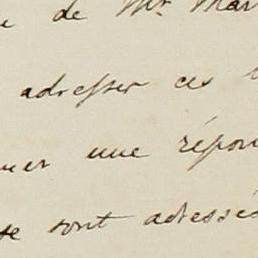 de Mr. Mar
adresser ces
une répon
se sont adressés